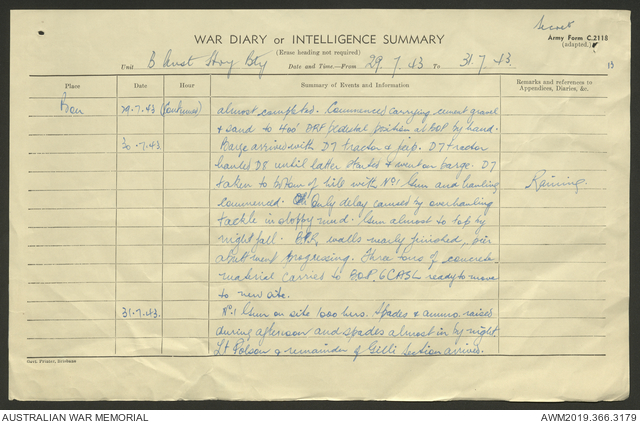 Secret
Army Form C.2118
(adapted.)
WAR DIARY or INTELLIGENCE SUMMARY
(Erase heading not required)
Unit B Aust Hvy Bty Date and Time.—From 29.7.43 To 31.7.43.
Place Date Hour Summary of Events and Information Remarks and references to Appendices, Diaries, &c.
29.7.43 (Continued) almost completed. Commenced carrying cement gravel
& sand to 400' DRF Pedestal position at BOP by hand.
30.7.43 Barge arrived with D7 tractor & jeep. D7 tractor
hauled D8 until latter started & went on barge. D7
taken to bottom of hill with No1 Gun and hauling Raining.
commenced. Only delay caused by overhauling
tackle in sloppy mud. Gun almost to top by
nightfall. walls nearly finished,
abutment progressing. Three tons of concrete
material carried to BOP. 6 CASL ready to move
to new site.
31.7.43. No.1 Gun on site 1000 hrs. Spades & ammo. raised
during afternoon and spades almost in by night
Lt Polson & remainder of Section arrived.
AUSTRALIAN WAR MEMORIAL
AWM2019.366.3179